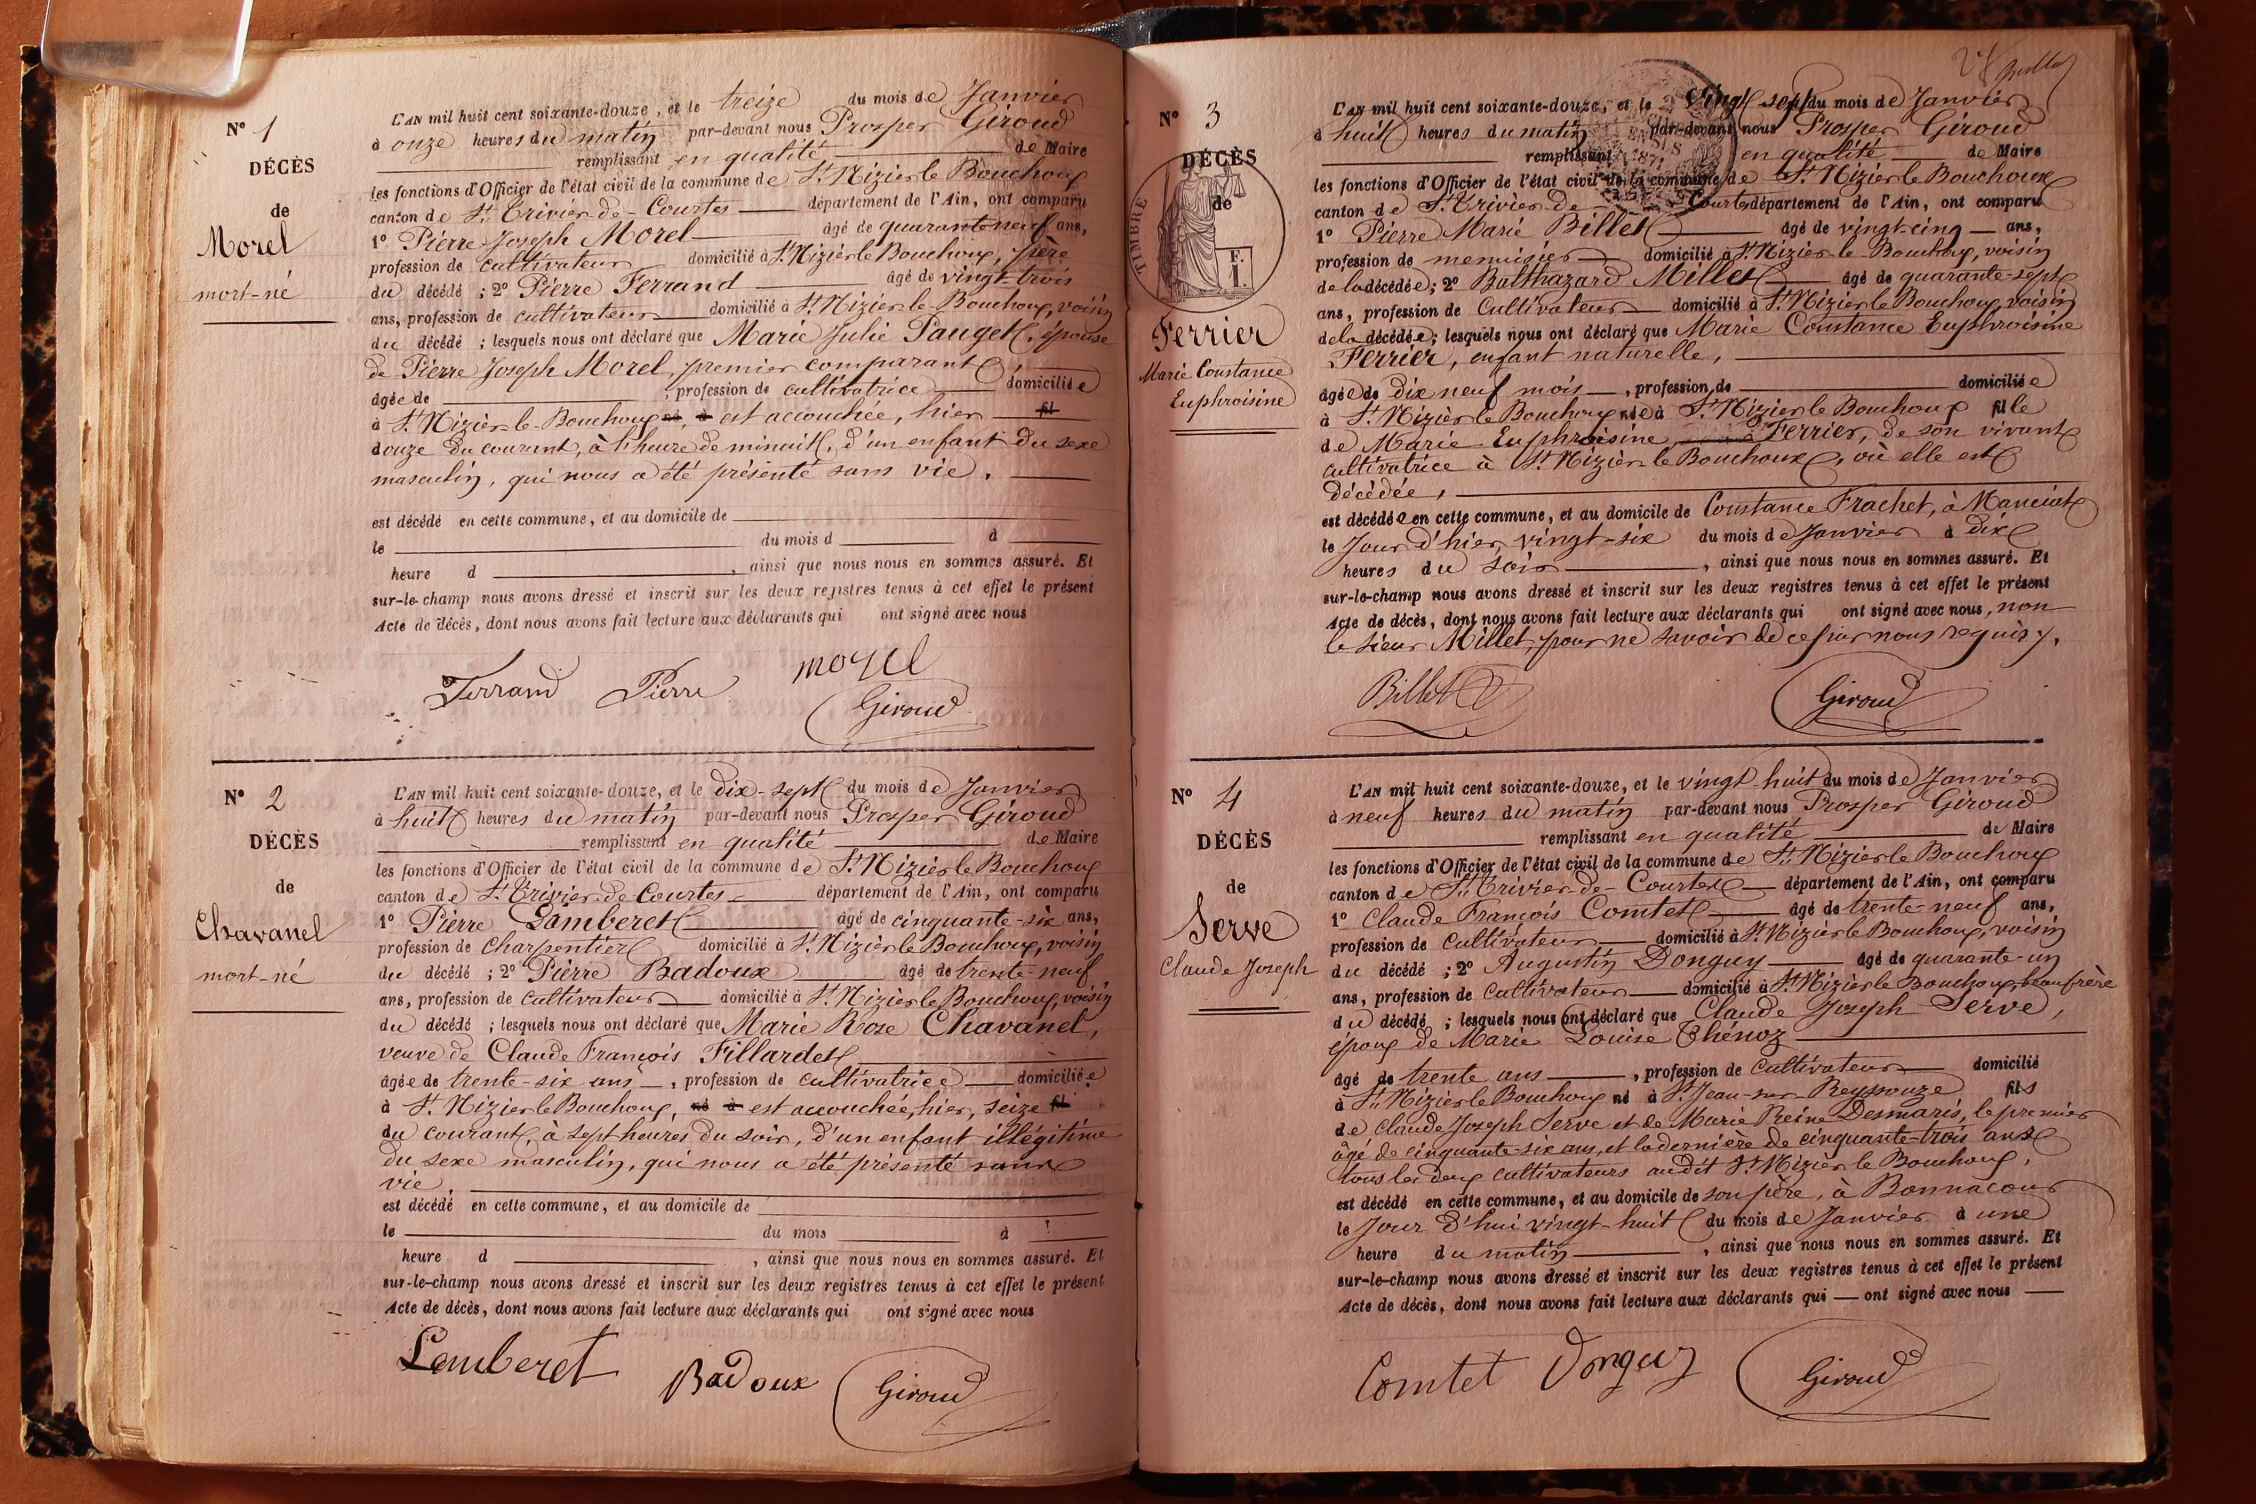 N° 1
DÉCÈS
de
Morel
mort-né
L'AN mil huit cent soixante-douze, et le treize du mois de Janvier
à onze heures du matin par-devant nous Prosper Giroud
remplissant en qualité de Maire
les fonctions d'Officier de l'état civil de la commune de St Nizier le Bouchoux
canton de St Trivier-de-Courtes département de l'Ain, ont comparu
1° Pierre Joseph Morel âgé de quarante neuf ans,
profession de cultivateur domicilié à St Nizier le Bouchoux, père
du décédé ; 2° Pierre Ferrand âgé de vingt-trois
ans, profession de cultivateur domicilié à St Nizier-le-Bouchoux, voisin
du décédé ; lesquels nous ont déclaré que Marie Julie Pauget, épouse
de Pierre Joseph Morel, premier comparant,
âgée de , profession de cultivatrice domiciliée
à St Nizier-le-Bouchoux né, à est accouchée, hier fil
douze du courant, à l'heure de minuit, d'un enfant du sexe
masculin, qui nous a été présenté sans vie.
est décédé en cette commune, et au domicile de
le du mois d à
heure d , ainsi que nous nous en sommes assuré. Et
sur-le-champ nous avons dressé et inscrit sur les deux registres tenus à cet effet le présent
Acte de décès, dont nous avons fait lecture aux déclarants qui ont signé avec nous
Ferrand Pierre morel
Giroud
N° 2
DÉCÈS
de
Chavanel
mort-né
L'AN mil huit cent soixante-douze, et le dix-sept du mois de Janvier
à huit heures du matin par-devant nous Prosper Giroud
remplissant en qualité de Maire
les fonctions d'Officier de l'état civil de la commune de St Nizier le Bouchoux
canton de St Trivier-de-Courtes département de l'Ain, ont comparu
1° Pierre Lamberet âgé de cinquante-six ans,
profession de Charpentier domicilié à St Nizier le Bouchoux, voisin
du décédé ; 2° Pierre Badoux âgé de trente-neuf
ans, profession de cultivateur domicilié à St Nizier le Bouchoux, voisin
du décédé ; lesquels nous ont déclaré que Marie Rose Chavanel,
veuve de Claude François Fillardet
âgée de trente-six ans, profession de cultivatrice domiciliée
à St Nizier le Bouchoux, né à est accouchée, hier, seize fil
du courant, à sept heures du soir, d'un enfant illégitime
du sexe masculin, qui nous a été présenté sans
vie.
est décédé en cette commune, et au domicile de
le du mois à
heure d , ainsi que nous nous en sommes assuré. Et
sur-le-champ nous avons dressé et inscrit sur les deux registres tenus à cet effet le présent
Acte de décès, dont nous avons fait lecture aux déclarants qui ont signé avec nous
Lamberet Badoux Giroud
N° 3
DÉCÈS
de
TIMBRE
F.
1.
Ferrier
Marie Constance
Euphroisine
L'AN mil huit cent soixante-douze, et le Vingt sept du mois de Janvier
à huit heures du matin par-devant nous Prosper Giroud
remplissant en qualité de Maire
les fonctions d'Officier de l'état civil de la commune de St Nizier le Bouchoux
canton de St Trivier de Courtes département de l'Ain, ont comparu
1° Pierre Marie Billet âgé de vingt-cinq ans,
profession de menuisier domicilié à St Nizier-le-Bouchoux, voisin
de la décédée ; 2° Balthazard Millet âgé de quarante-sept
ans, profession de Cultivateur domicilié à St Nizier le Bouchoux, voisin
de la décédée ; lesquels nous ont déclaré que Marie Constance Euphroisine
Ferrier, enfant naturelle,
âgée de dix neuf mois, profession de domiciliée
à St Nizier le Bouchoux née à St Nizier le Bouchoux fille
de Marie Euphroisine Ferrier, de son vivant
cultivatrice à St Nizier-le Bouchoux, où elle est
décédée,
est décédée en cette commune, et au domicile de Constance Frachet, à Manciat
le Jour d'hier, vingt-six du mois de Janvier à dix
heures du soir , ainsi que nous nous en sommes assuré. Et
sur-le-champ nous avons dressé et inscrit sur les deux registres tenus à cet effet le présent
Acte de décès, dont nous avons fait lecture aux déclarants qui ont signé avec nous, non
le sieur Millet, pour ne savoir de ce par nous requis.
Billet Giroud
N° 4
DÉCÈS
de
Serve
Claude Joseph
L'AN mil huit cent soixante-douze, et le vingt huit du mois de Janvier
à neuf heures du matin par-devant nous Prosper Giroud
remplissant en qualité de Maire
les fonctions d'Officier de l'état civil de la commune de St Nizier le Bouchoux
canton de St Trivier-de-Courtes département de l'Ain, ont comparu
1° Claude François Comtet âgé de trente-neuf ans,
profession de Cultivateur domicilié à St Nizier le Bouchoux, voisin
du décédé ; 2° Augustin Donguy âgé de quarante-un
ans, profession de Cultivateur domicilié à St Nizier le Bouchoux, beau frère
du décédé ; lesquels nous ont déclaré que Claude Joseph Serve,
époux de Marie Louise Thénoz
âgé de trente ans , profession de Cultivateur domicilié
à St Nizier le Bouchoux né à St Jean-sur-Reyssouze fils
de Claude Joseph Serve et de Marie Reine Desmaris, le premier
âgé de cinquante-six ans, et la dernière de cinquante-trois ans
tous les deux cultivateurs audit St Nizier le Bouchoux,
est décédé en cette commune, et au domicile de son père, à Bonnacour
le Jour d'hui vingt-huit du mois de Janvier à une
heure du matin , ainsi que nous nous en sommes assuré. Et
sur-le-champ nous avons dressé et inscrit sur les deux registres tenus à cet effet le présent
Acte de décès, dont nous avons fait lecture aux déclarants qui ont signé avec nous
Comtet Donguy Giroud